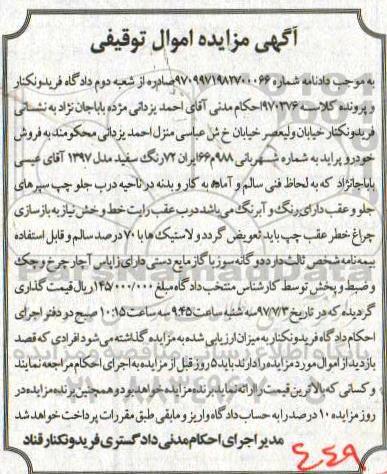 آگهی مزایده اموال توقیفی
به موجب دادنامه شماره ۹۷۰۹۹۷۱۹۸۲۷۰۰۰۶۶ صادره از شعبه دوم دادگاه فریدونکنار
و پرونده کلاسه ۹۷۰۳۷۶ احکام مدنی آقای احمد یزدانی مژده باباجان نژاد به نشانی
فریدونکنار خیابان ولیعصر خیابان خ ش عباسی منزل احمد یزدانی محکومند به فروش
خودرو پراید به شماره شهربانی ۹۸۸م۶۶ ایران ۷۲ رنگ سفید مدل ۱۳۹۷ آقای عیسی
باباجانژاد که به لحاظ فنی سالم و آماده به کار و بدنه در ناحیه درب جلو چپ سپرهای
جلو و عقب دارای رنگ و آبرنگ می باشد درب عقب رایت خط و خش نیاز به بازسازی
چراغ خطر عقب چپ باید تعویض گردد و لاستیک ها با ۷۰ درصد سالم و قابل استفاده
بیمه نامه شخص ثالث دارد دوگانه سوز با گاز مایع دستی دارای زاپاس آچار چرخ و جک
و ضبط و پخش توسط کارشناس منتخب دادگاه مبلغ ۱۴۵/۰۰۰/۰۰۰ ریال قیمت گذاری
گردیده که در تاریخ ۹۷/۷/۳ سه شنبه ساعت ۹:۴۵ سه ساعت ۱۰:۱۵ صبح در دفتر اجرای
احکام دادگاه فریدونکنار به میزان ارزیابی شده به مزایده گذاشته می شود افرادی که قصد
بازدید از اموال مورد مزایده را دارند باید ۵ روز قبل از مزایده به اجرای احکام مراجعه نمایند
و کسانی که بالاترین قیمت را ارائه نماید برنده مزایده خواهد بود همچنین برنده مزایده در
روز مزایده ۱۰ درصد را به حساب دادگاه واریز و مابقی طبق مقررات پرداخت خواهد شد
مدیر اجرای احکام مدنی دادگستری فریدونکنار قناد
۴۴۹